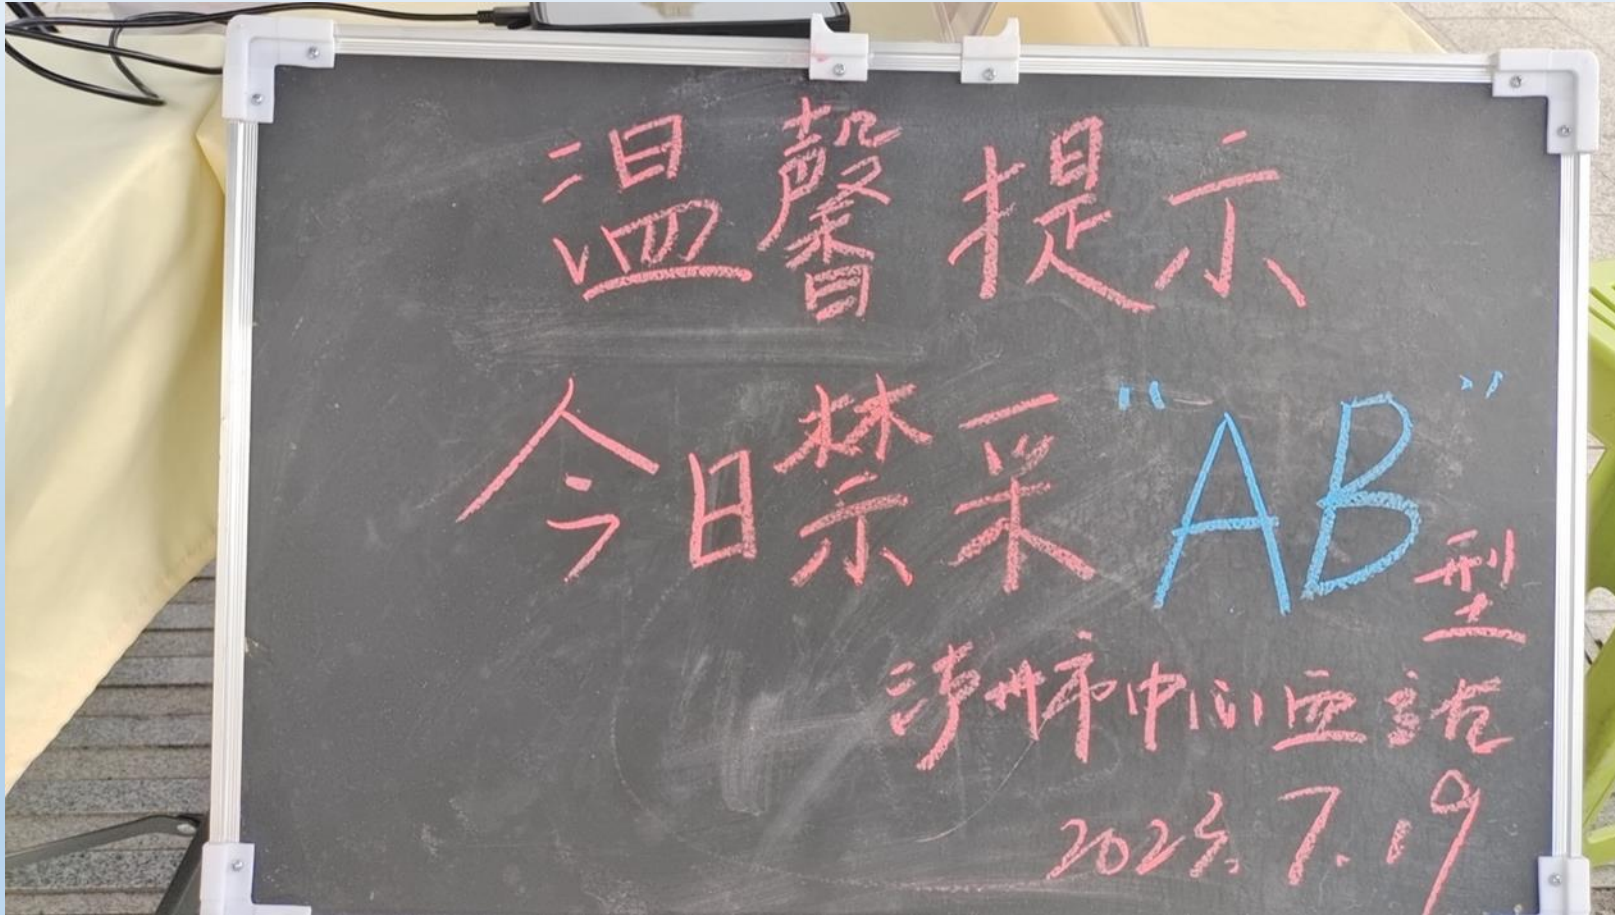 温馨提示
今日禁采“AB”型
泸州市中心血站
2025.7.19